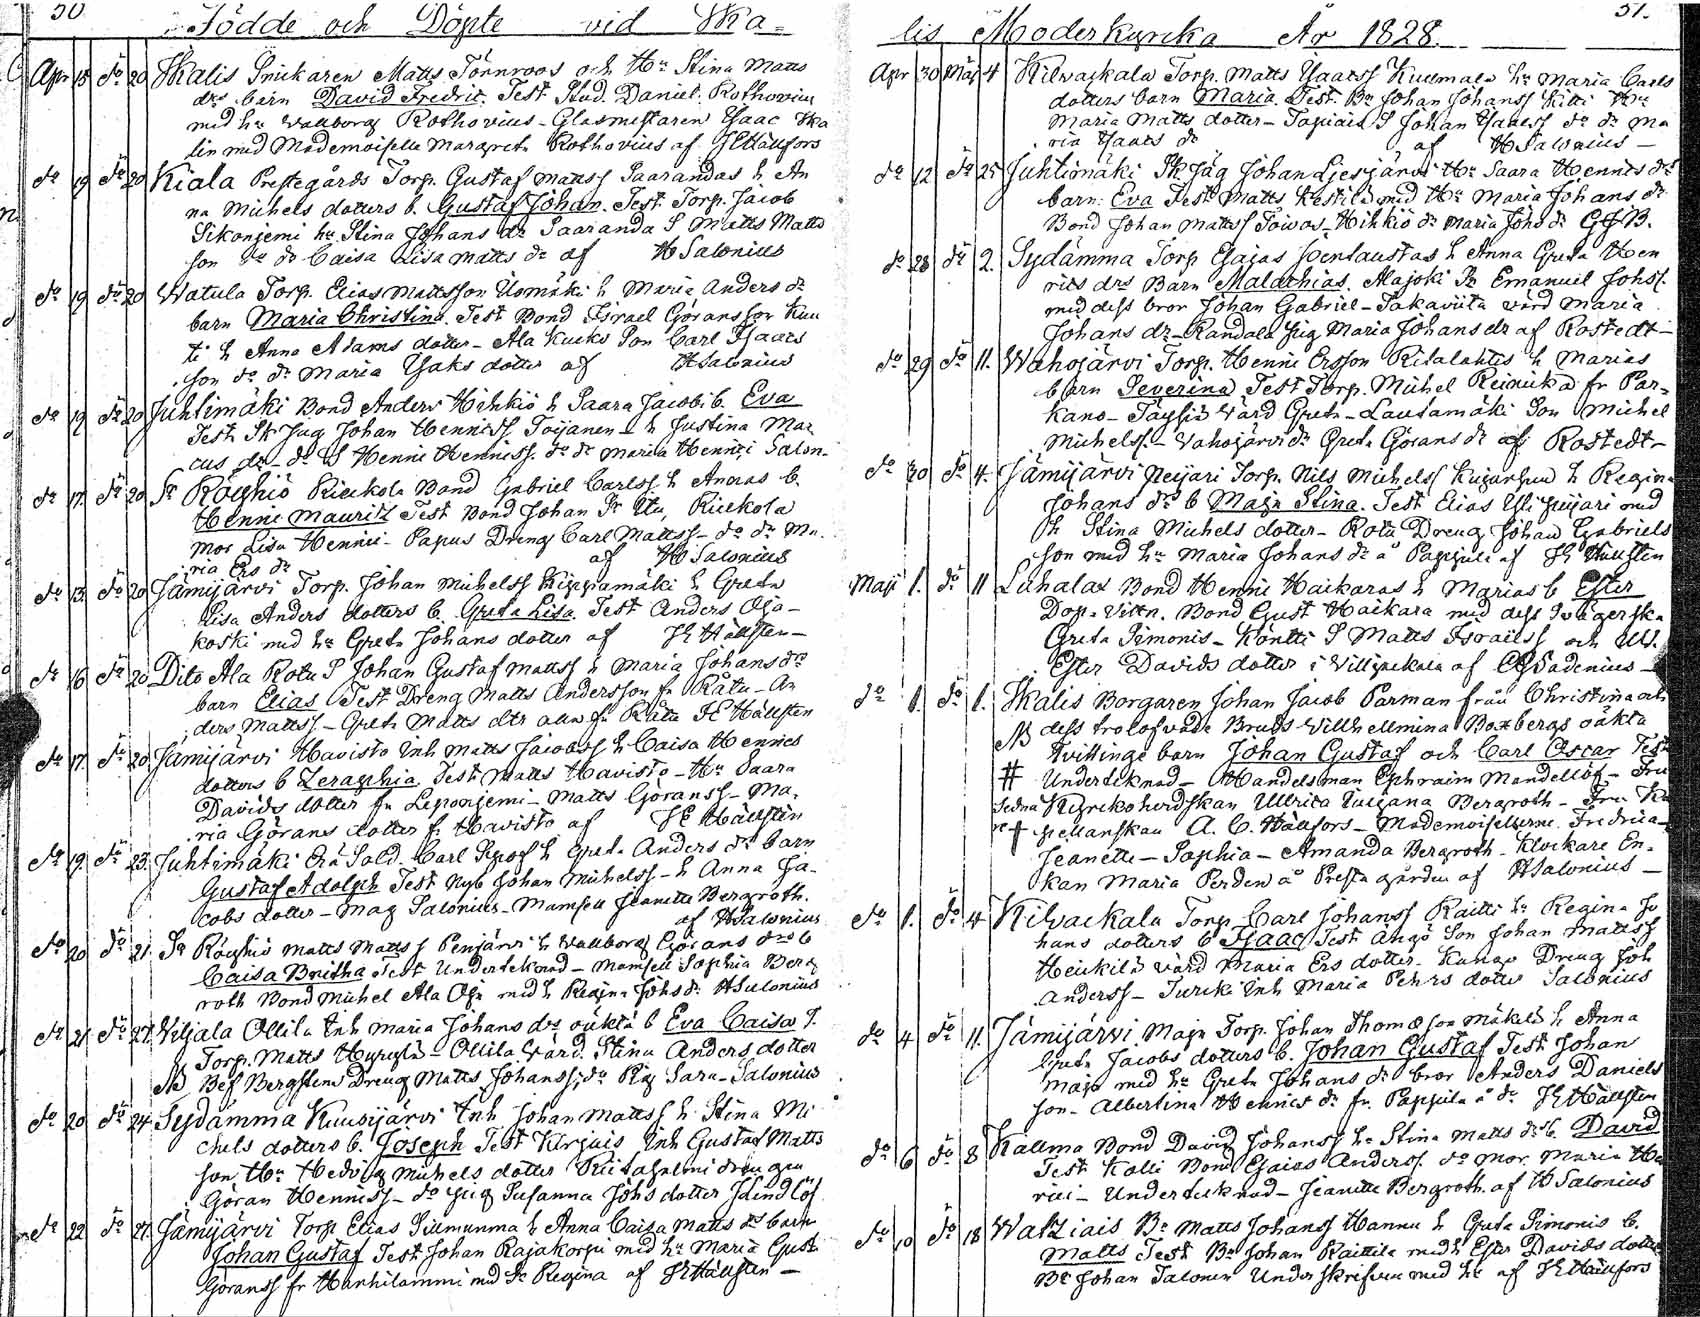 50
Födde och Döpte vid Ika=
Apr 15 do 20 Ikalis Snickaren Matts Törnroos och Hu Stina Matts
drs barn David Fredric. Test Stud. Daniel Rothovius
med hu Wallborg Rothovius - Glasmestaren Isaac Ika
lin med Mademoiselle Margreth Rothovius af JE Hällfors
do 19 do 20 Kiala Prestegårds Torp. Gustaf Mattss Saarandas h An
na Michels dotters b. Gustaf Johan. Test Torp. Jacob
Sikonjemi hu Stina Johans dr Saaranda S Matts Matts
son do do Caisa Lisa Matts dr af H Salonius
do 19 do 20 Watula Torp. Elias Mattsson Usmäki h Maria Anders dr
barn Maria Christina. Test Bond Israel Göransson Kuu
ti h Anna Adams dotter - Ala Kuuks Son Carl Isaacs
son do dr Maria Isaks dotter af H Salonius
do 19 do 20 Juhtimäki Bond Anders Hihkiö h Saara Jacobi b. Eva
Test Sk Jug Johan Henness Toijanen - h Justina Mar
cus dr - do S Henric Henricss. do dr Maria Henrici Salon-
do 17 do 20 Sr Röyhiö Rickola Bond Gabriel Carlss h Annas b.
Henric Mauritz Test Bond Johan Sr Utu, Rickola
mor Lisa Henrici - Papus Dreng Carl Mattss - do dr Ma
ria Ers dr af H Salonius
do 13 do 20 Jämijärvi Torp. Johan Michelss Kippamäki h Greta
Lisa Anders dotters b. Greta Lisa. Test Anders Oja-
koski med hu Greta Johans dotter af JE Hällsten -
do 16 do 20 Dito Ala Rotu S Johan Gustaf Mattss h Maria Johans drs
barn Elias Test Dreng Matts Andersson fr Råtu - An
ders Mattss - Greta Matts dtr alla fr Råtu JE Hällsten
do 17 do 20 Jämijärvi Havisto Inh Matts Jacobss h Caisa Henrics
dotters b Zeraphia Test Matts Havisto - Hu Saara
Davids dotter fr Leponjemi - Matts Göranss - Ma
ria Görans dotter fr Havisto af JE Hällsten
do 19 do 23 Juhtimäki Sold. Carl h Greta Anders dr barn
Gustaf Adolph Test Nyb Johan Michelss - h Anna Ja-
cobs dotter - Mag Salonius - Mamsell Jeanette Bergroth.
af H Salonius
do 20 do 21 Sr Röyhiö Matts Mattss Penjärvi h Wallborg Görans drs b
Caisa Britha Test Underteknad - Mamsell Sophia Berg
roth Bond Michel Ala Oja med h Regina Johs dr H Salonius
do 21 do 27 Viljala Ollila Inh Maria Johans drs oäkta b Eva Caisa T.
Torp. Matts Hyrylä - Ollila Värd. Stina Anders dotter
NB Bef Bergstens Dreng Matts Johanss, do Pig Sara - Salonius
do 20 do 24 Sydämma Kuusijärvi Inh Johan Mattss h Stina Mi
chels dotters b. Joseph Test Kerjuis Inh Gustaf Matts
son Hu Hedvig Michels dotter Riitasalmi drengen
Göran Henricss - do pig Susanna Johs dotter J Lindlöf
do 22 do 27 Jämijärvi Torp Elias Sillmunma h Anna Caisa Matts drs barn
Johan Gustaf Test Johan Rajakorpi med hu Maria Gust
Göranss fr Hanhilammi med Sr Regina af JE Hällsten -
51.
lis Moderkyrcka År 1828.
Apr 30 Maj 4 Kilvackala Torp. Matts Isaacss Kullmala hu Maria Carls
dotters barn Maria. Test. Br Johan Johanss Kitti Hu
Maria Matts dotter - Tapiala S Johan Isaacss do dr Ma
ria Isaacs dr af H Salonius -
do 12 do 25 Juhtimäki Sk Jäg Johan Liesjärvi Hu Saara Hennes drs
barn: Eva Test Matts Kestilä med Hu Maria Johans dr
Bond Johan Mattss Toivas - Hihkiö dr Maria Johs dr GJB.
do 28 do 2. Sydämma Torp Esajas Pentaustas h Anna Greta Hen
rics drs Barn Malachias. Alajoki Br Emanuel Johss.
med dess bror Johan Gabriel - Takaviita värd Maria
Johans dr - Randala pig Maria Johans dr af Rostedt -
do 29 do 11. Wahojärvi Torp. Henric Ersson Ritalahtis h Marias
barn Severina Test Torp. Michel Reinikka fr Par=
kano - Täyliä Värd Greta - Lautamäki Son Michel
Michelss - Vahojärvi dr Greta Görans dr af Rostedt -
do 30 do 4. Jämijärvi Peijari Torp. Nils Michelss Kujanpää h Regina
Johans drs b Maja Stina. Test Elias Yli Peijari med
h Stina Michels dotter - Rotu Dreng Johan Gabriels
son med hu Maria Johans dr å Pappila af JE Hällsten
Maji 1. do 11 Luhalax Bond Henric Haikaras h Marias b Ester
Dop. Vittn. Bond Gust Haikara med dess Svägerska
Greta Simonis - Kontti S Matts Israelss och
Ester Davids dotter i Villjackala af CG Sadenius -
do 1. do 1. Ikalis Borgaren Johan Jacob Parman från Christina och
NB dess trolofvade Bruds Willhellmina Boxbergs oäkta
tvillinge barn Johan Gustaf och Carl Oscar Test
# Underteknad - Handelsman Ephraim Mandellöf - Fru
Kyrkoherdskan Ullrica Juliana Bergroth - Fru Ka
pellanskan A. C. Hällfors - Mademoisellerne Fredrica -
Jeanette - Sophia - Amanda Bergroth - Klockare En-
kan Maria Perden å Prestagården af H Salonius -
do 1. do 4 Kilvackala Torp Carl Johanss Raitti hu Regina Jo
hans dotters b Isaac Test Angö Son Johan Mattss
Heickilä värd Maria Ers dotter. Kangas Dreng Joh
Anderss - Turcki Inh Maria Pehrs dotter Salonius
do 4 do 11. Jämijärvi Maja Torp. Johan Thomæson Mäkelä h Anna
Greta Jacobs dotters b. Johan Gustaf Test Johan
Maja med hu Greta Johans dr bror Anders Daniels
son - Albertina Henrics dr fr. Pappila å dr. JE Hällsten
do 6 do 8 Kallma Bond David Johanss hu Stina Matts drs b. David
Test Kalli Bond Esaias Anderss. do mor Maria Ha
rici - Underteknad - Jeanette Bergroth. af H Salonius
do 10 do 18 Watziais Br Matts Johanss Hannu h Greta Simonis b.
Matts Test Br Johan Raittila med h Ester Davids dotter
Br Johan Talonen Underskrifven med hu af JE Hällfors